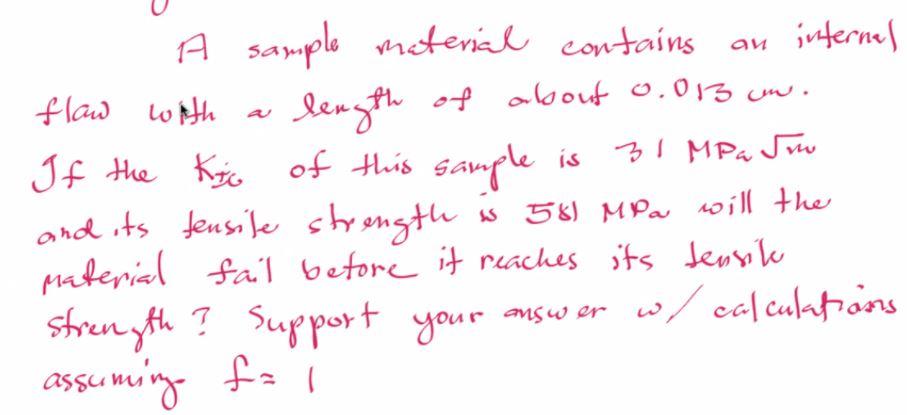 A sample material contains an internal
flaw with a length of about 0.013 cm.
If the KIC of this sample is 31 MPa √m
and its tensile strength is 581 MPa will the
material fail before it reaches its tensile
strength? Support your answer w/ calculations
assuming f= 1